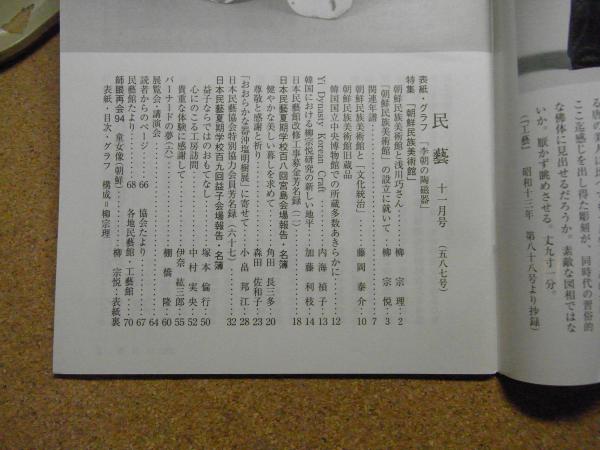 る唐の
ここ迄感じを出し得た彫刻が、同時代の習俗的
な佛体に見出せるだらうか。素敵な図相ではな
いか。厭かず眺めさせる。丈九寸一分。
（『工藝』　昭和十三年　第八十八号より抄録）
民藝　十一月号　（五八七号）
表紙・グラフ　「李朝の陶磁器」
特集　「朝鮮民族美術館」
朝鮮民族美術館と浅川巧さん……柳　宗理…2
「朝鮮民族美術館」の設立に就いて…柳　宗悦…3
関連年譜……7
朝鮮民族美術館と「文化統治」……藤岡泰介…10
朝鮮民族美術館旧蔵品
韓国国立中央博物館での所蔵多数あきらかに……12
Yi Dynasty Korean Craft……内海禎子…13
韓国における柳宗悦研究の新しい地平……加藤利枝…14
日本民藝館改修工事募金芳名録（二）……18
日本民藝夏期学校百八回宮島会場報告・名簿
健やかな美しい暮しを求めて……角田長三多…20
尊敬と感謝と祈り……森田佐和子…23
「おおらかな器沖塩明樹展」に寄せて……小畠邦江…28
日本民藝協会特別協力会員芳名録（六十七）……32
日本民藝夏期学校百九回益子会場報告・名簿
益子ならではのおもてなし……塚本倫行…50
心にのこる工房訪問……中村実央…52
貴重な体験に感謝して……伊奈紘三郎…55
バーナードの夢（六）……棚橋隆…60
展覧会・講演会……64
読者からのページ…66　協会たより……67
民藝館たより……68　各地民藝館・工藝館……70
師眼再会94　童女像（朝鮮）……柳　宗悦…表紙裏
表紙・目次・グラフ　構成＝柳宗理